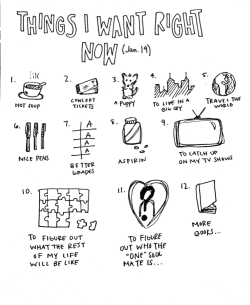 THINGS I WANT RIGHT
NOW (Jan 19)
1.
HOT SOUP
2.
CONCERT
TICKETS
3.
A PUPPY
4.
TO LIVE IN A
BIG CITY
5.
TRAVEL THE
WORLD
6.
NICE PENS
7.
A
A
A
A
BETTER
GRADES
8.
ASPIRIN
9.
TO CATCH UP
ON MY TV SHOWS
10.
TO FIGURE OUT
WHAT THE REST
OF MY LIFE
WILL BE LIKE
11.
?
TO FIGURE
OUT WHO THE
"ONE" SOUL
MATE IS...
12.
MORE
BOOKS...